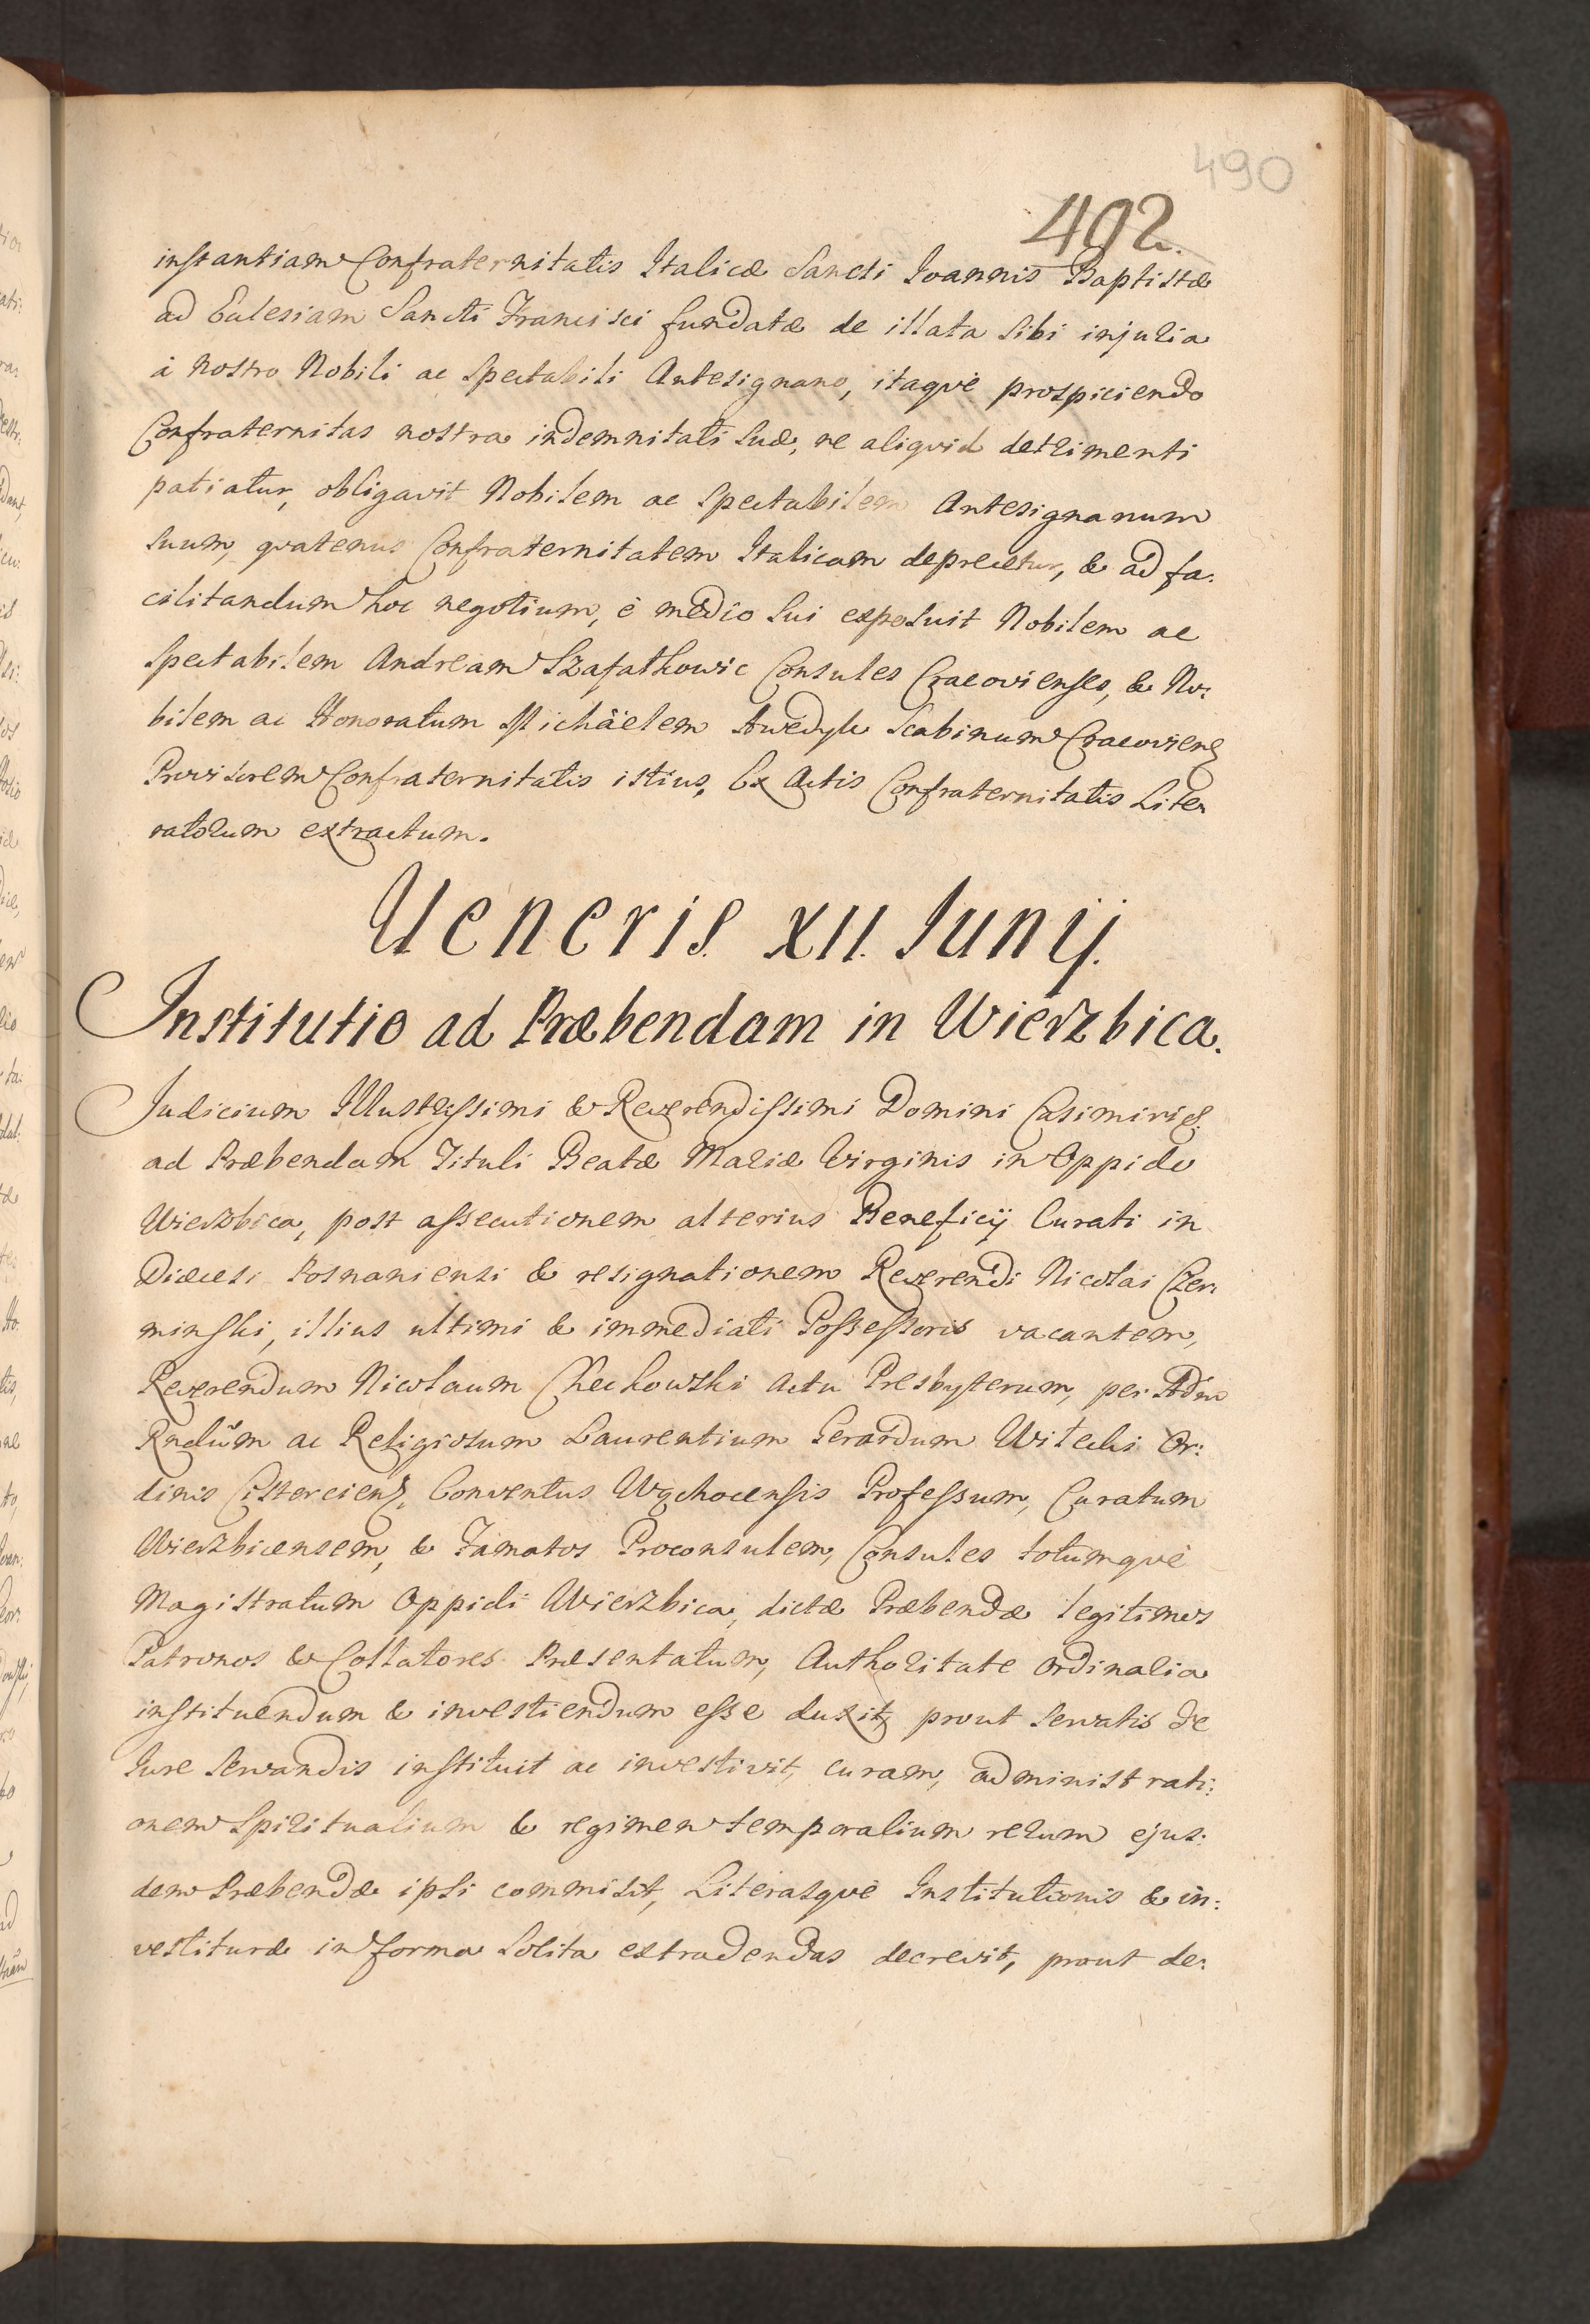 490
492.
instantiam Confraternitatis Italicæ Sancti Ioannis Baptistæ
ad Eclesiam Sancti Francisci fundatæ de illata sibi injuria
à nostro Nobili ac Spectabili Antesignano, itaqvè prospiciendo
Confraternitas nostra indemnitati suæ, ne aliqvid detrimenti
patiatur, obligavit Nobilem ac Spectabilem Antesignanum
suum, qvatenus Confraternitatem Italicam deprecetur, & ad fa:
cilitandum hoc negotium, è medio sui exposuit Nobilem ac
Spectabilem Andream Consules Cracovienses, & No:
bilem ac Honoratum Michäelem Scabinum Cracoviens
Provisorem Confraternitatis istius, Ex Actis Confraternitatis Lite:
ratorum extractum.
Veneris XII. Junij.
Institutio ad Præbendam in Wierzbica.
Judicium Illustrissimi & Reverendissimi Domini Casimiri &.
ad Præbendam Tituli Beatæ Mariæ Virginis in Oppido
Wierzbica, post assecutionem alterius Beneficij Curati in
Diæcesi Posnaniensi & resignationem Reverendi Nicolai Czer:
minski, illius ultimi & immediati Possessoris vacantem,
Reverendum Nicolaum Chechowski actu Presbyterum, per Adm
Rndum ac Religiosum Laurentium Gerardum Witecki Or:
dinis Cisterciens. Conventus Wąchocensis Professum, Curatum
Wierzbicensem, & Famatos Proconsulem, Consules totumqvè
Magistratum Oppidi Wierzbica, dictæ Præbendæ legitimos
Patronos & Collatores Præsentatum, Authoritate Ordinaria
instituendum & investiendum esse duxit, prout servatis de
Jure servandis instituit ac investivit, curam, administrati:
onem Spiritualium & regimen temporalium rerum ejus:
dem Præbendæ ipsi commisit, Literasqvè Institutionis & in:
vestituræ in forma solita extradendas decrevit, prout de: